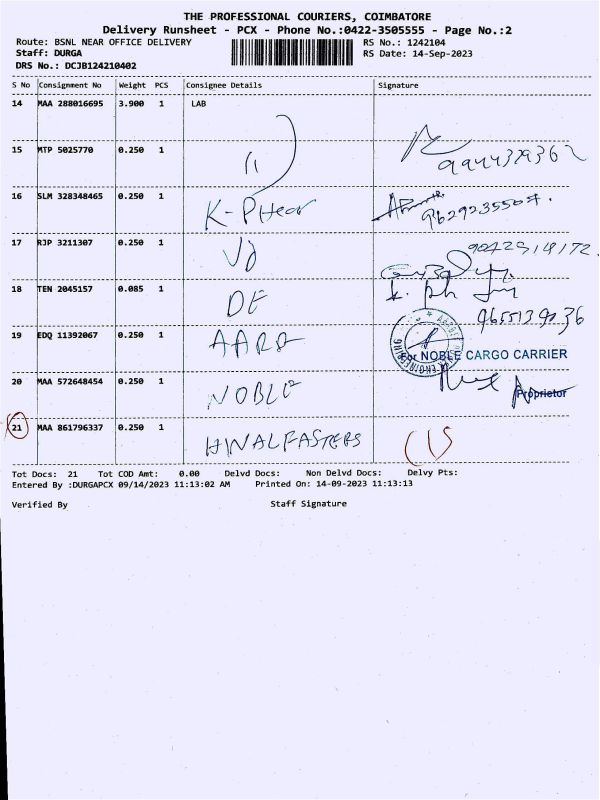 THE PROFESSIONAL COURIERS, COIMBATORE
Delivery Runsheet - PCX - Phone No.:0422-3505555 - Page No.:2
Route: BSNL NEAR OFFICE DELIVERY RS No.: 1242104
Staff: DURGA RS Date: 14-Sep-2023
DRS No.: DCJB124210402
S No Consignment No Weight PCS Consignee Details Signature
14 MAA 288016695 3.900 1 LAB
15 MTP 5025770 0.250 1
9944379362
16 SLM 328348465 0.250 1
K-PHear
9629235504.
17 RJP 3211307 0.250 1
9042519172.
18 TEN 2045157 0.085 1
DE
9655139236
19 EDQ 11392067 0.250 1
AARO
For NOBLE CARGO CARRIER
20 MAA 572648454 0.250 1
NOBLE
Proprietor
21 MAA 861796337 0.250 1
HINALFASTERS
Tot Docs: 21 Tot COD Amt: 0.00 Delvd Docs: Non Delvd Docs: Delvy Pts:
Entered By :DURGAPCX 09/14/2023 11:13:02 AM Printed On: 14-09-2023 11:13:13
Verified By Staff Signature